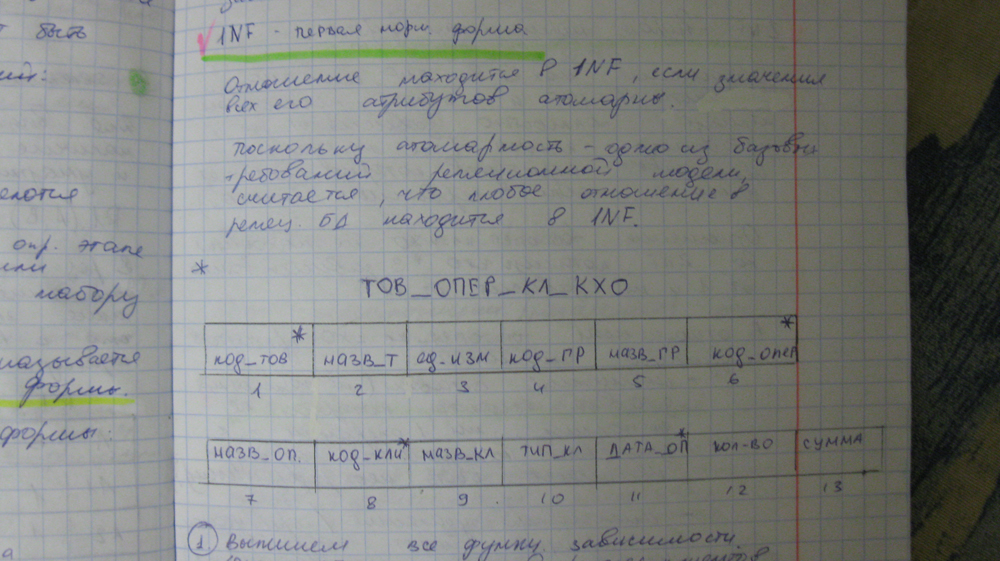 т быть
ий:
еляются
опр. этапе
или
набору
называется
формы.
формы:
1NF - первая норм. форма
Отношение находится в 1NF, если значения
всех его атрибутов атомарны.
поскольку атомарность - одно из базовых
требований реляционной модели,
считается, что любое отношение в
реляц. БД находится в 1NF.
*
ТОВ_ОПЕР_КЛ_КХО
код_тов* назв_т ед_изм код_пр назв_пр код_опер*
1 2 3 4 5 6
назв_оп. код_кли* назв_кл тип_кл дата_оп* кол-во сумма
7 8 9 10 11 12 13
1 Выпишем все функц. зависимости